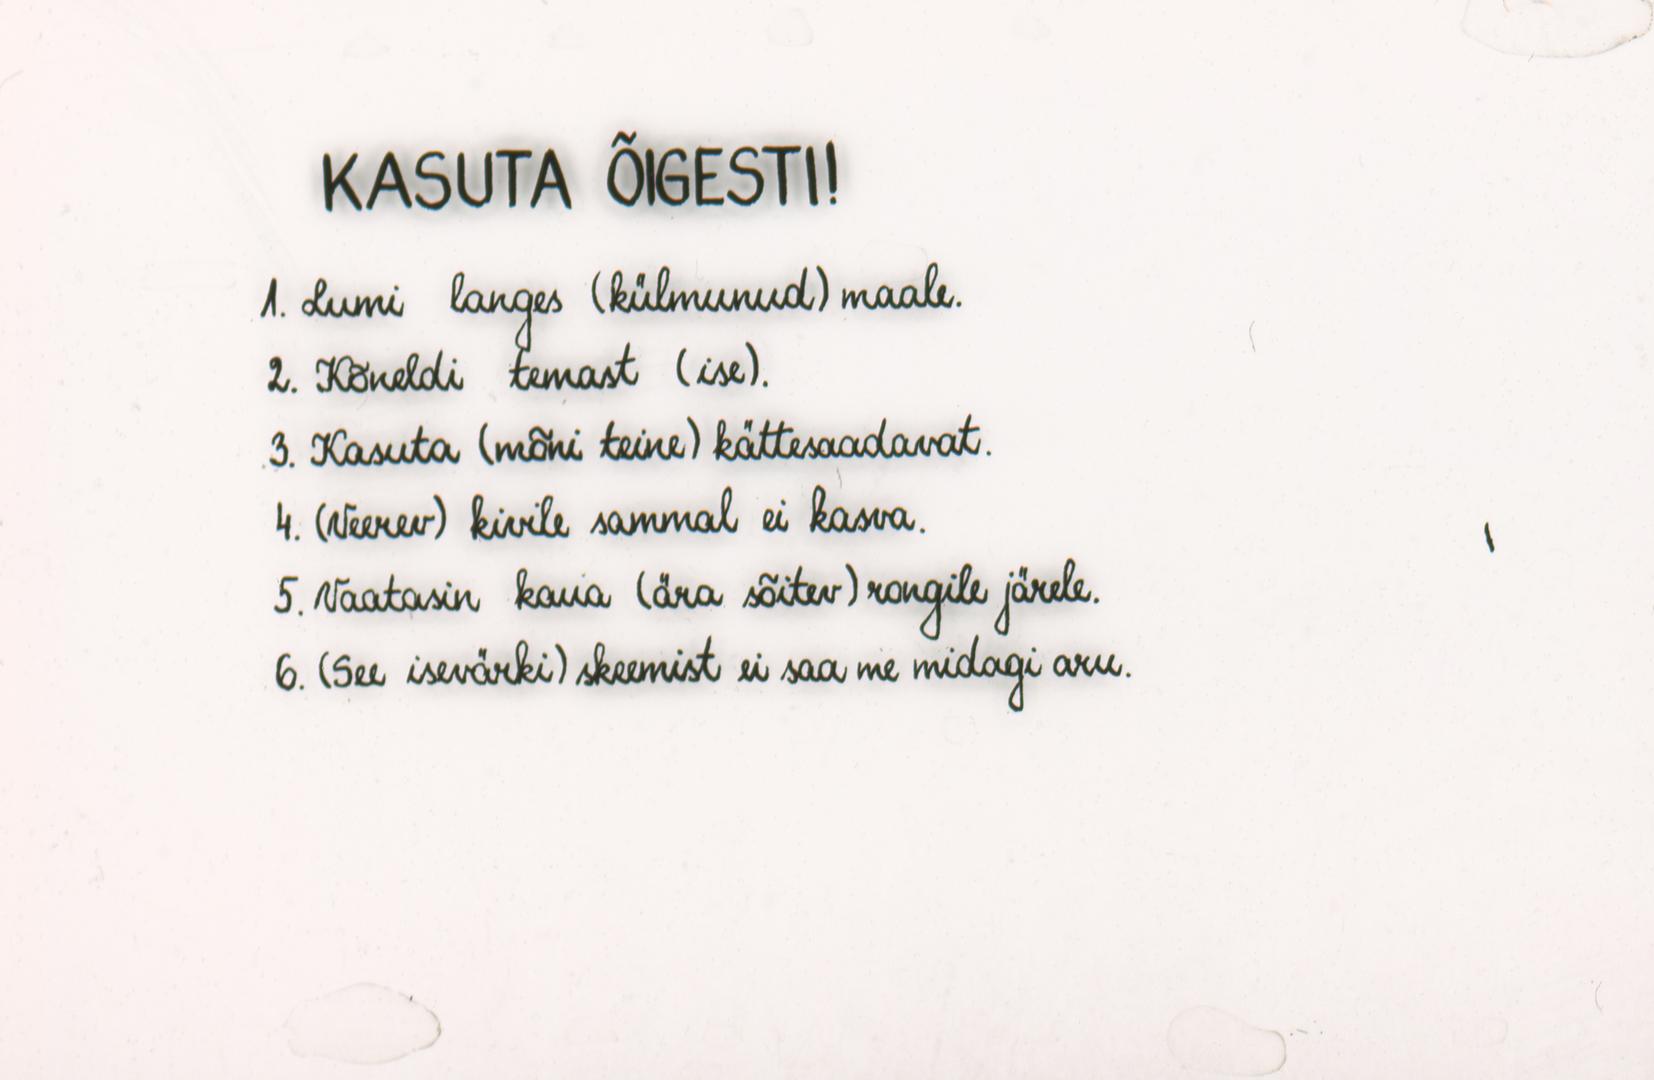 KASUTA ÕIGESTI!
1. Lumi langes (külmunud) maale.
2. Kõneldi temast (ise).
3. Kasuta (mõni teine) kättesaadavat.
4. (Veerev) kivile sammal ei kasva.
5. Vaatasin kaua (ära sõitev) rongile järele.
6. (See isevärki) skeemist ei saa me midagi aru.